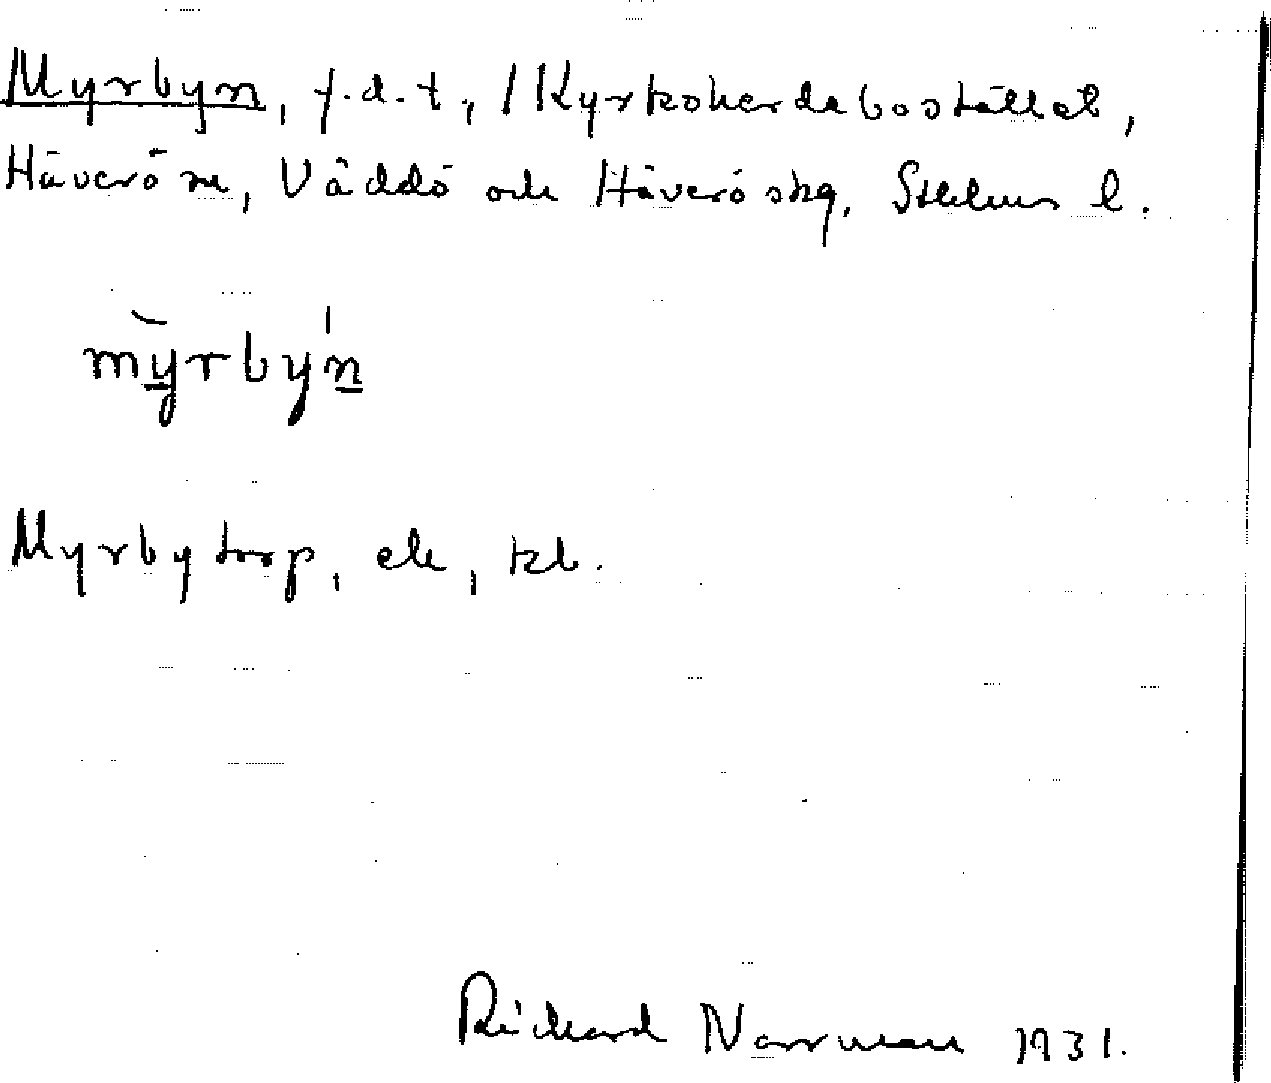 Myrbyn, f.d.t, / Kyrkoherdebostället,
Häverö sn, Väddö och Häverö skg, Sthlms l.
mỳrbyń
Myrbytorp, ek, kb.
Richard Norrman 1931.